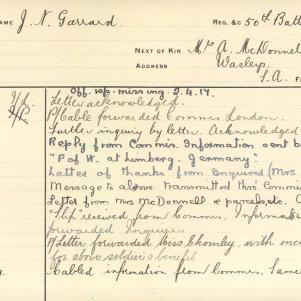 NAME J. N. Garrard REG. &c 50th Batt
NEXT OF KIN Mrs A. McDonnel
ADDRESS Wasleys
S.A.
Off. rep. missing. 2.4.17.
Letter acknowledged.
P/Cable forwarded Commrs London.
Further inquiry by letter. Acknowledged
Reply from Commrs. Information sent b
"P of W. at Limberg. Germany."
Letter of thanks from Enquirer (Mrs
Message to above transmitted this Comm
Letter from Mrs McDonnell re parcels etc.
"Slip" received from Commrs. Informat
forwarded Enquirer
P/Letter forwarded Miss Chomley, with enc
for above soldier's benefit
Cabled information from Commrs. Same